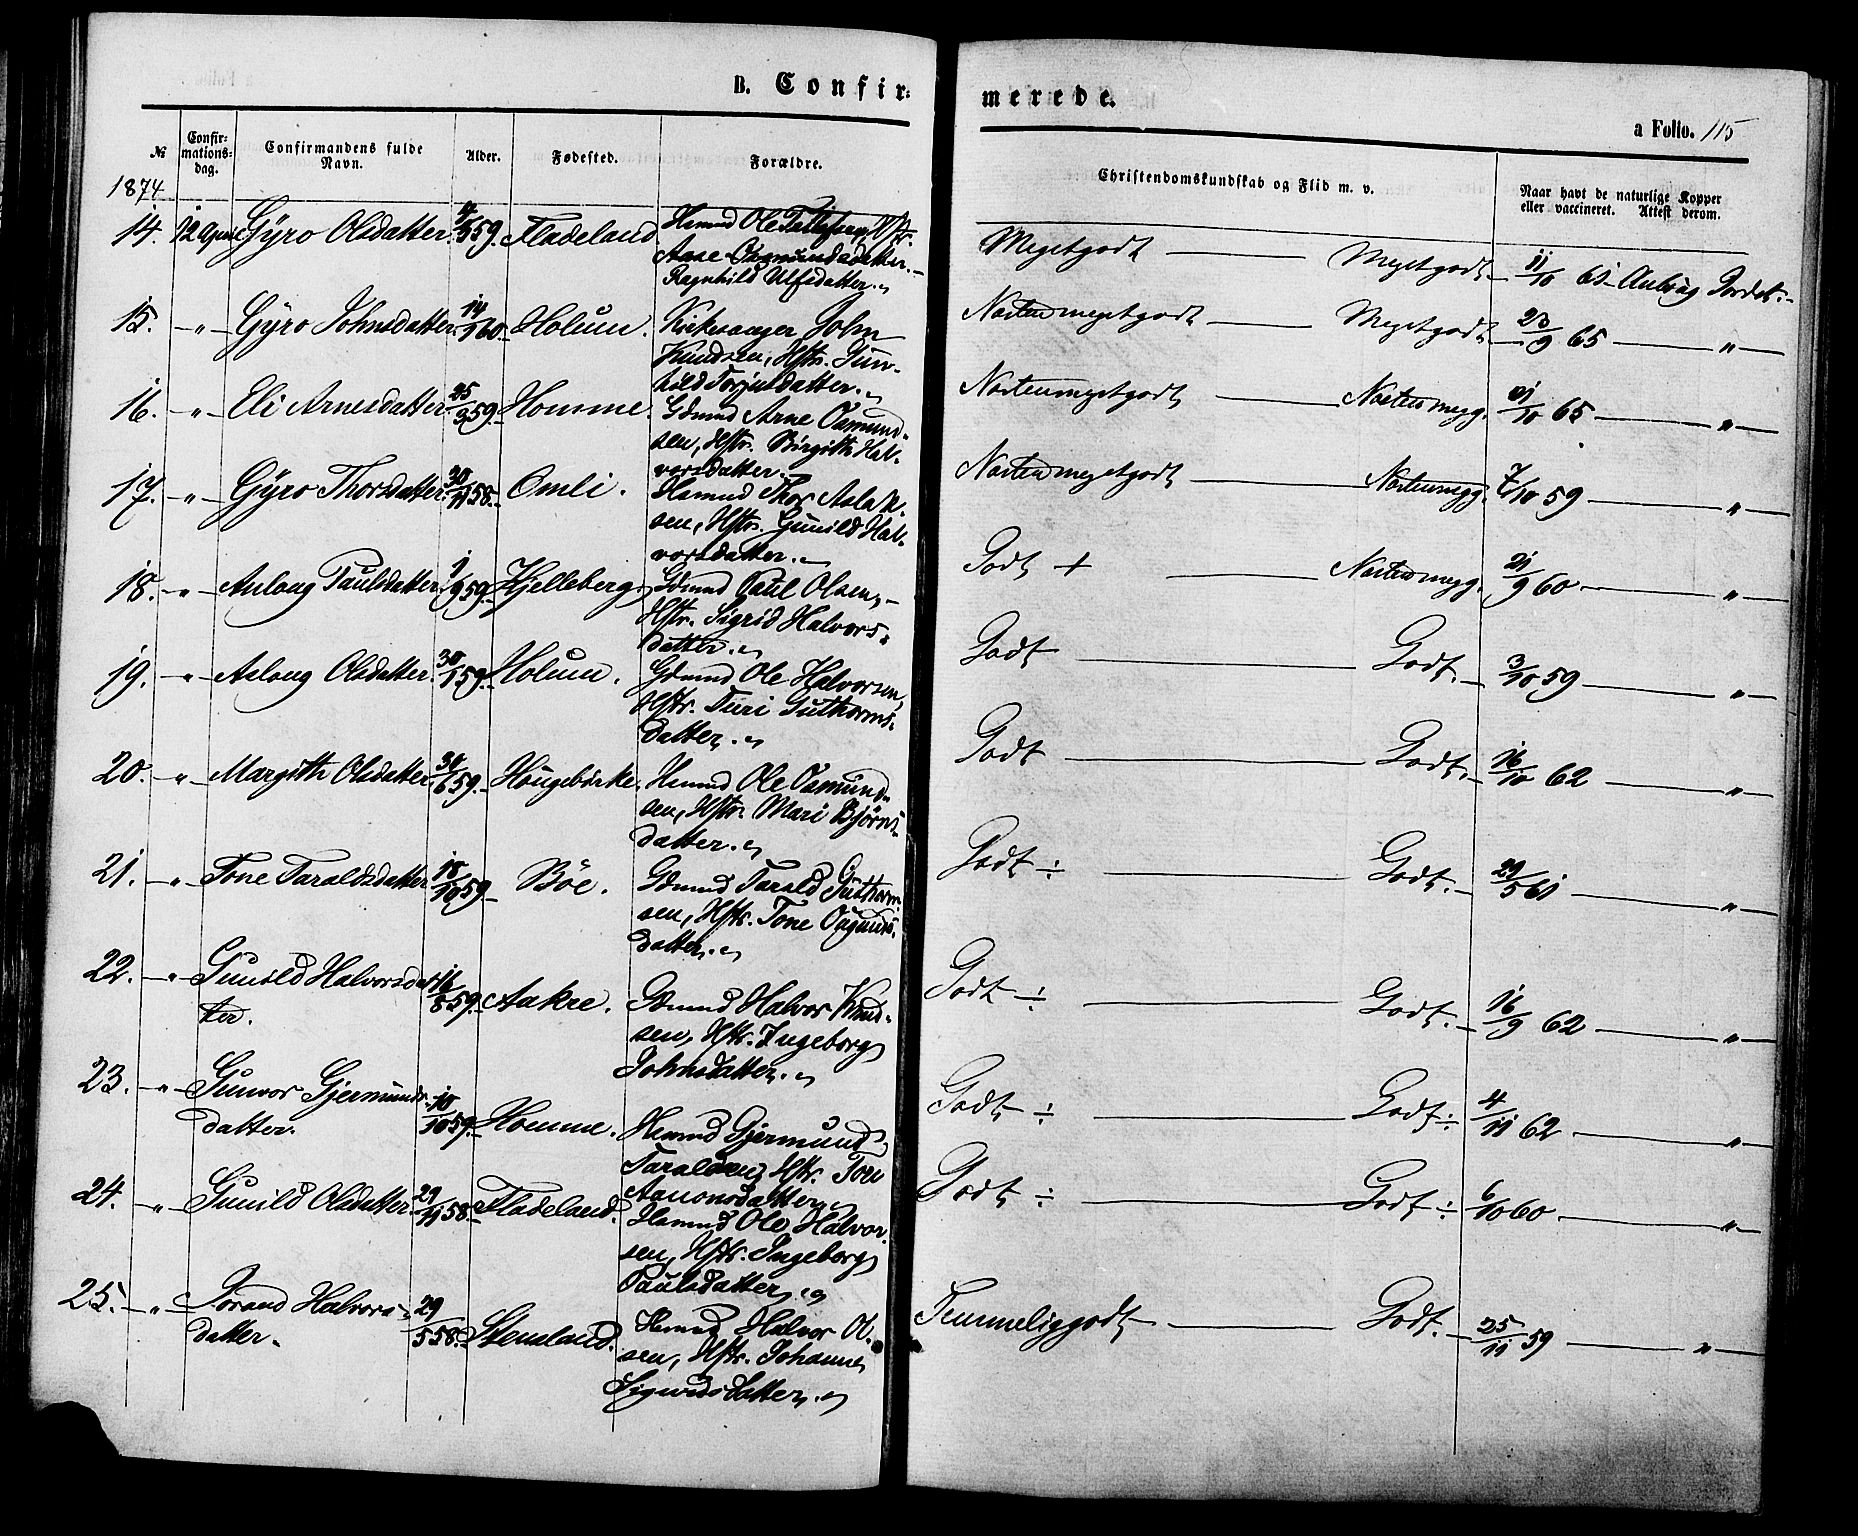 B. Confir-
merede.
a Folio. 115
№ Confirmationsdag. Confirmandens fulde Navn. Alder. Fødested. Forældre. Christendomskundskab og Flid m. v. Naar havt de naturlige Kopper eller vaccineret. Attest derom.
1874
14. 12 April Gyro Olsdatter 4/5 59. Fladeland Hsmnd Ole
Aase Osmundsdatter.
Ragnhild Ulfsdatter. Megetgodt — Megetgodt. 11/10 61
15. " Gyro Johnsdatter. 14/1 60. Holum. Kirkesanger John
Knudsen, Hstr. Gun-
hild Torjusdatter. Næstenmegetgodt — Megetgodt 23/9 65 — "
16. " Eli Arnesdatter 25/3 59. Homme. Gdmnd Arne Osmund-
sen, Hstr. Birgith Hal-
vorsdatter. Næstenmegetgodt — Næstenmegg. 21/10 65 — "
17. " Gyro Thorsdatter. 30/11 58. Omli. Hsmnd Thor Aslak-
sen, Hstr. Gunild Hal-
vorsdatter. Næstenmegetgodt — Næstenmegg. 7/10 59 — "
18. " Anlaug Paulsdatter 1/9 59. Kjelleberg Gdmnd Paul Olsen,
Hstr. Sigrid Halvors-
datter. Godt + — Næstenmegg. 21/9 60 — "
19. " Aslaug Olsdatter. 30/1 59. Holum. Gdmnd Ole Halvorsen,
Hstr. Turi Guthorms-
datter. Godt — Godt. 3/10 59 — "
20. " Margith Olsdatter. 30/6 59. Hougebirke. Hsmnd Ole Osmund-
sen, Hstr. Mari Bjørns-
datter. Godt — Godt. 16/10 62 — "
21. " Tone Taraldsdatter 18/10 59 Bøe. Gdmnd Tarald Guthorm-
sen, Hstr. Tone Aagunds-
datter. Godt ÷ — Godt. 29/5 61 — "
22. " Gunild Halvorsdat-
ter. 16/8 59. Aakre. Gdmnd Halvor Knud-
sen, Hstr. Ingeborg
Johnsdatter. Godt ÷ — Godt. 16/9 62 — "
23. " Gunvor Gjermunds-
datter. 10/10 59. Homme. Hsmnd Gjermund
Taraldsen, Hstr. Tone
Aanonsdatter Godt ÷ — Godt ÷ 4/11 62 — "
24. " Gunild Olsdatter. 29/11 58. Fladeland. Hsmnd Ole Halvor-
sen, Hstr. Ingeborg
Paulsdatter. Godt ÷ — Godt ÷ 6/10 60 — "
25. " Jorand Halvors-
datter. 29/5 58. Stensland. Hsmnd Halvor Ol-
sen, Hstr. Johanne
Sigurdsdatter. Temmeliggodt — Godt. 25/11 59 — "